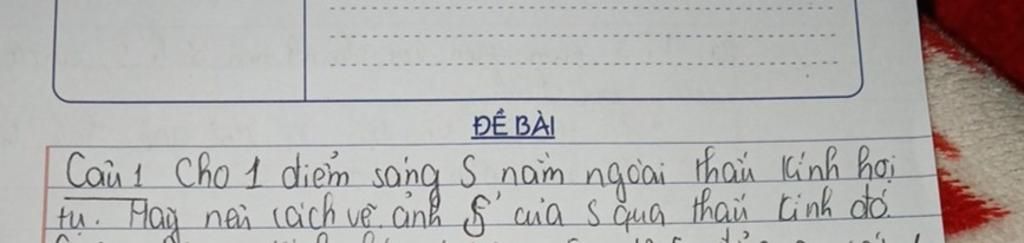 ĐỀ BÀI
Câu 1 Cho 1 điểm sáng S nằm ngoài thấu kính hội
tụ. Hãy nêu cách vẽ ảnh S' của S qua thấu kính đó.